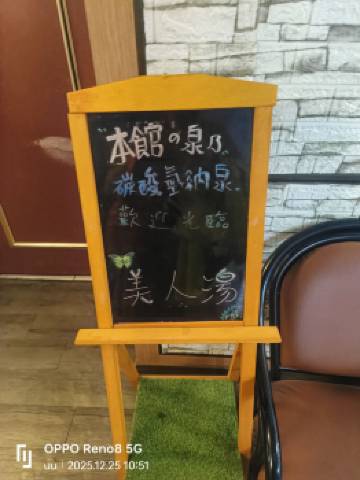 "本館の泉乃"
碳酸氫納泉。
歡迎光臨
美人湯
OPPO Reno8 5G
นบ | 2025.12.25 10:51